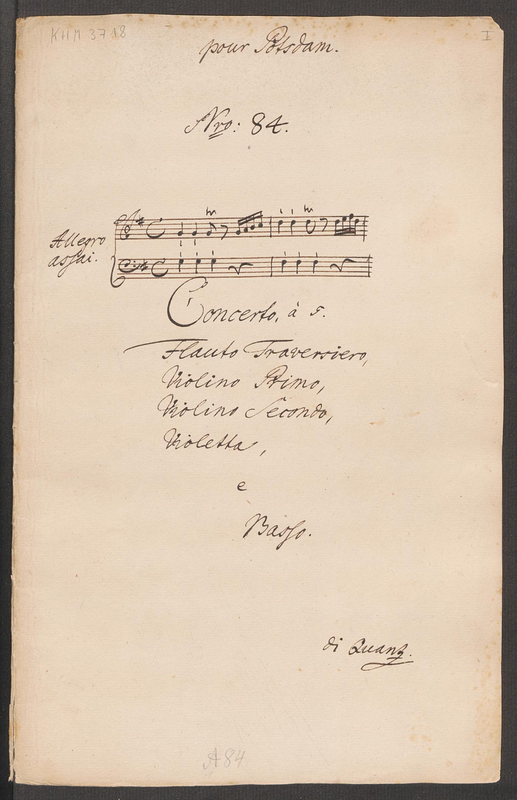 KHM 3718
I
pour Potsdam.
Nro: 84.
Allegro
assai.
Concerto, à 5.
Flauto Traversiero,
Violino Primo,
Violino Secondo,
Violetta,
e
Basso.
di Quanz.
A84